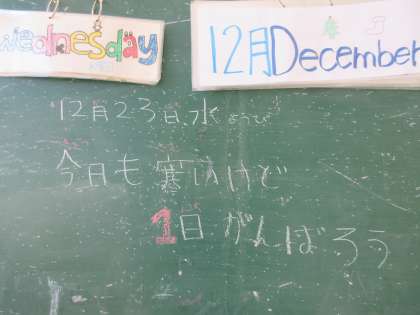 Wednesday
12月December
12月23日水ようび
今日も寒いけど
1日がんばろう